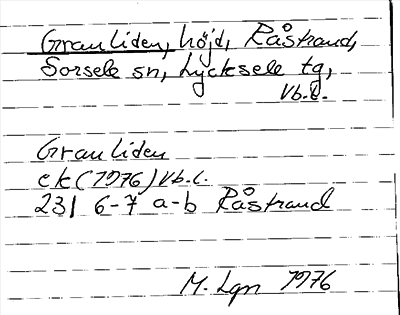 Granliden, höjd, Råstrand,
Sorsele sn, Lycksele tg,
Vb.l.
Granliden
ek (1976) Vb.l.
231 6-7 a-b Råstrand
M. Lgn 1976